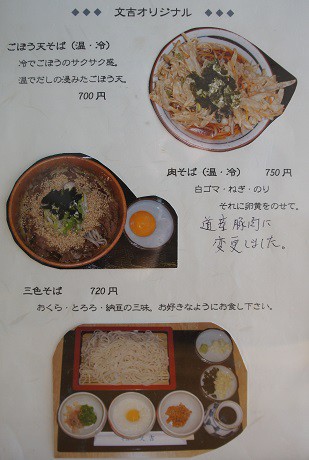 文吉オリジナル
ごぼう天そば(温・冷)
冷でごぼうのサクサク感。
温でだしの浸みたごぼう天。
700円
肉そば(温・冷) 750円
白ゴマ・ねぎ・のり
それに卵黄をのせて。
道産豚肉に
変更しました。
三色そば 720円
おくら・とろろ・納豆の三味。お好きなようにお食し下さい。